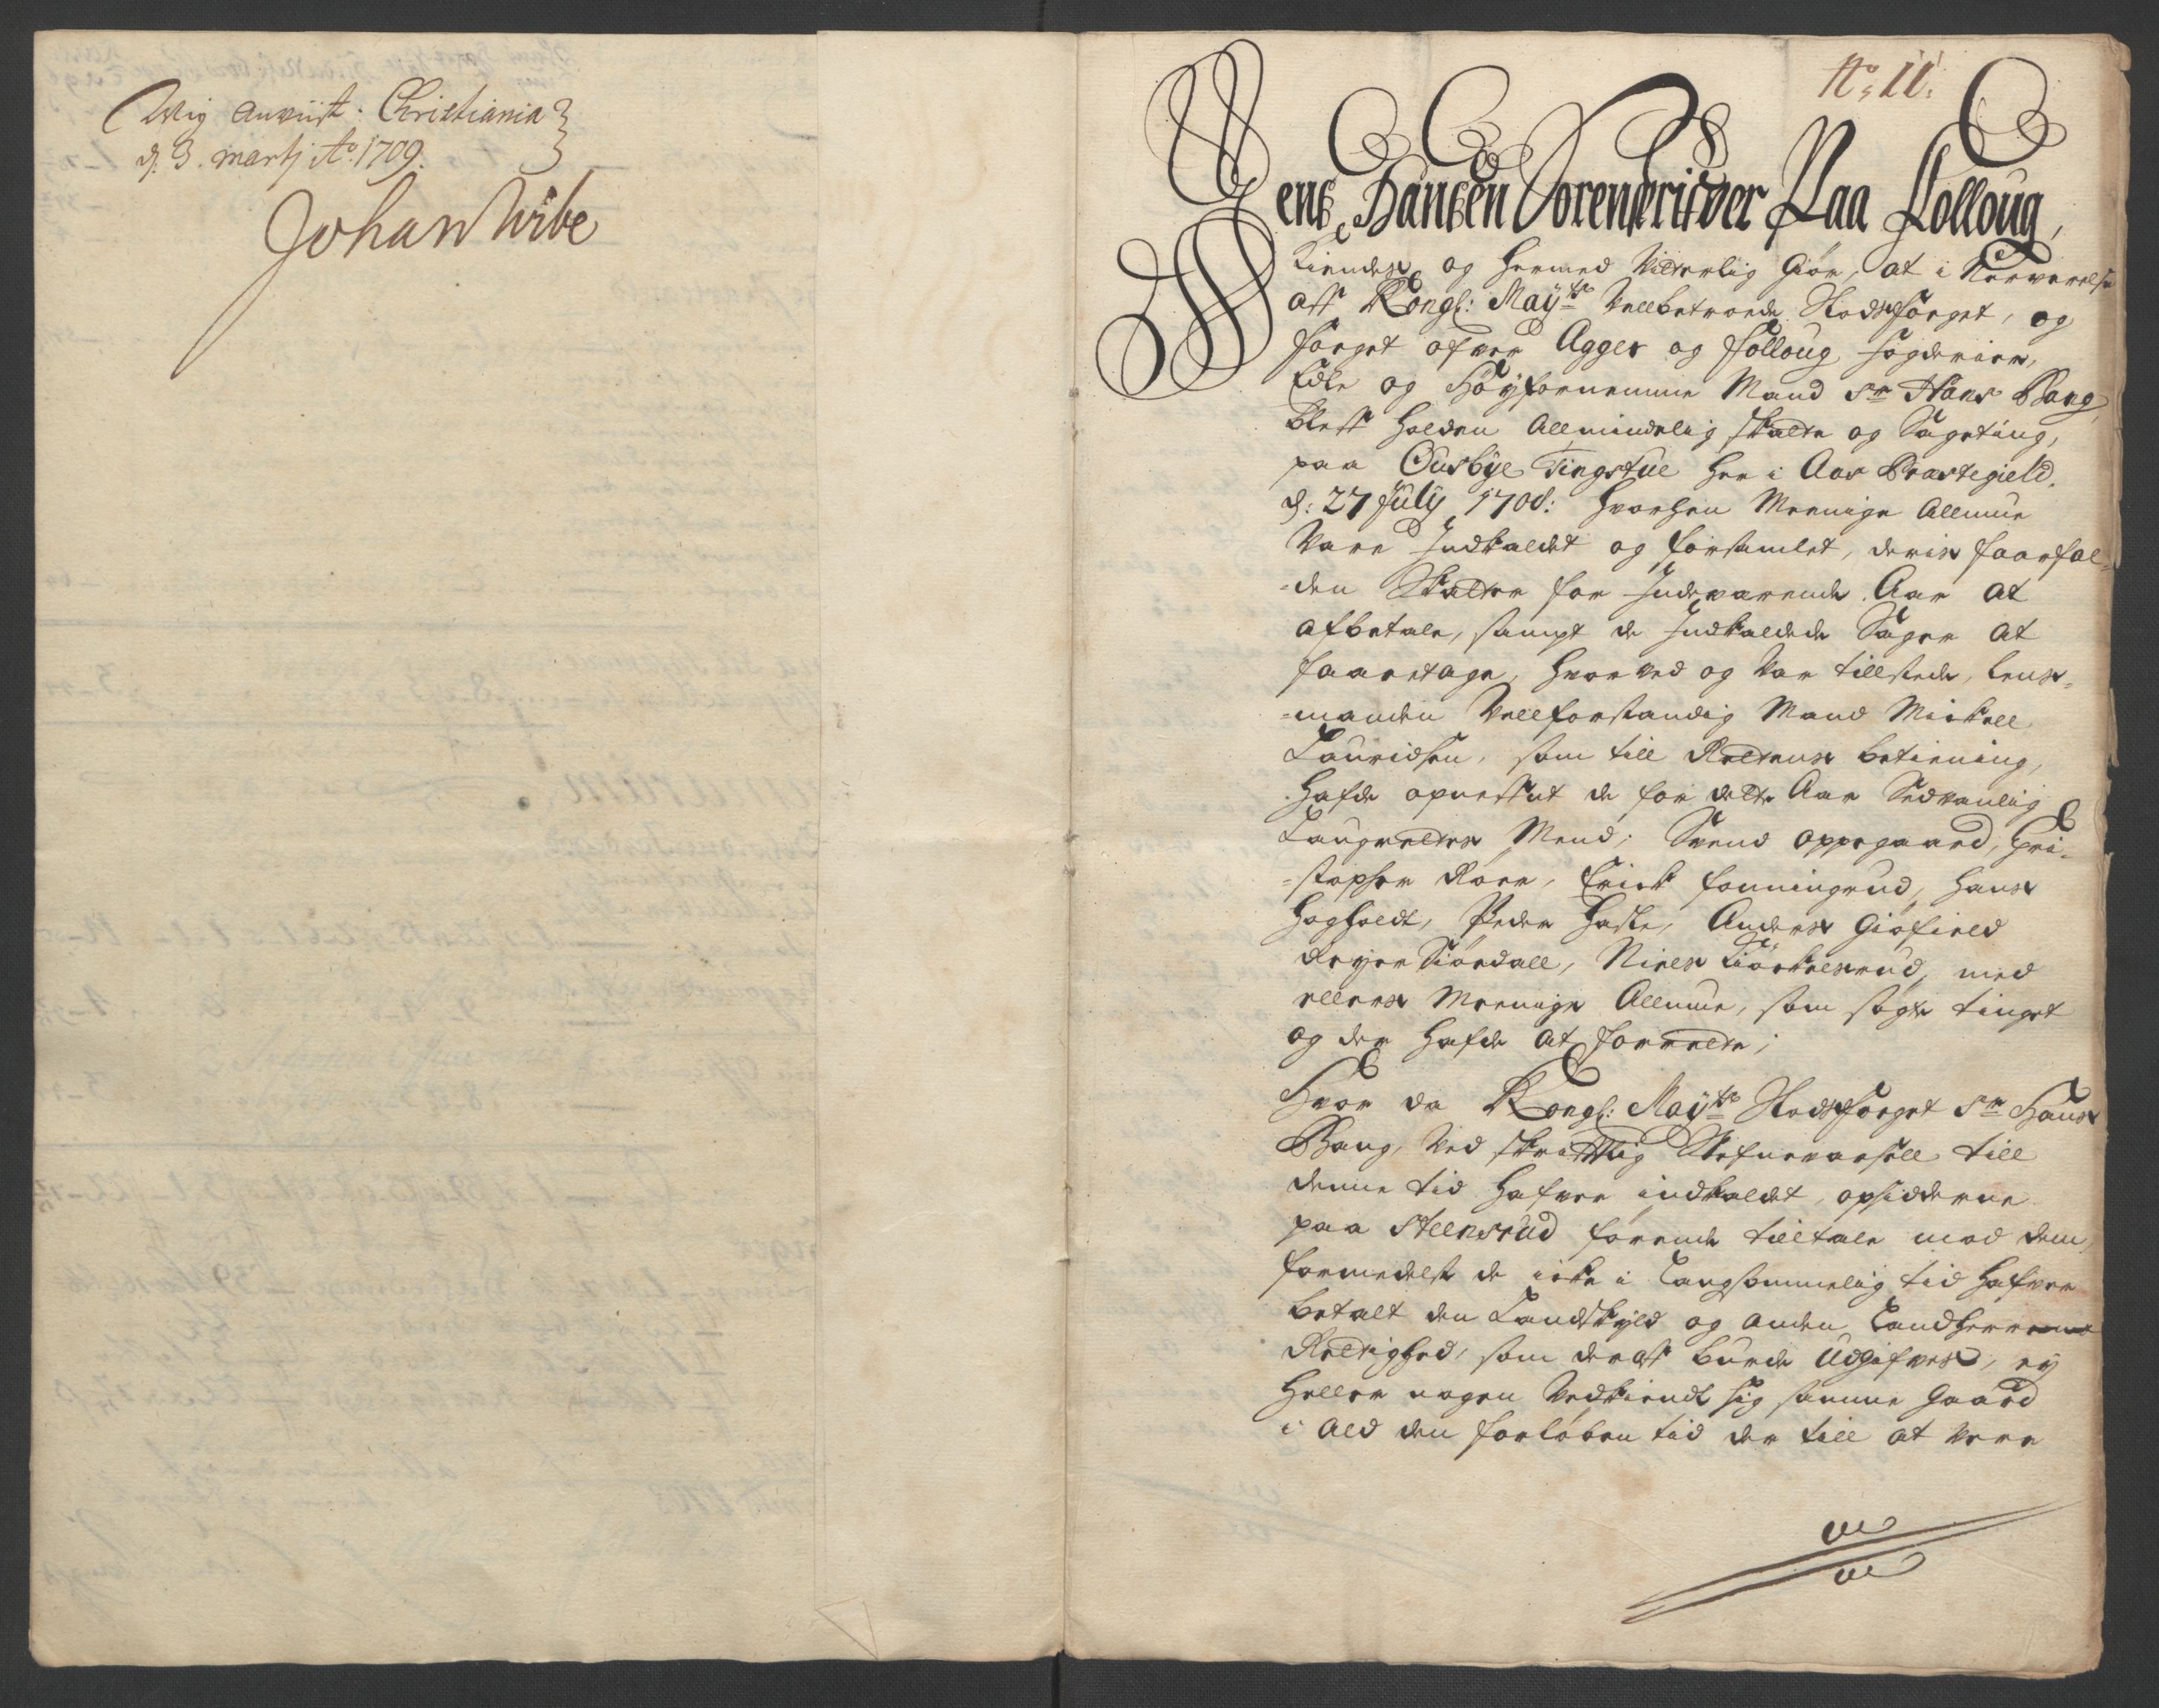 Mig anviist. Christiania
d. 3. martj Ao. 1709.
Johan Wibe
No. 11.
Jens Hansen Sorenskrifver Paa Folloug,
Kiendes og hermed Vitterlig Giør, at i Nerværelse
aff Kongl: Mayts Vellbetroede Stadsfoeget, og
foeget ofver Agger og Folloug fogderier,
Edle og Høyfornemme Mand Sr Hans Bang,
bleff holden Allmindelig skatte og Sageting,
paa Ousbye Tingstue her i Aas Præstegield.
d: 27 July 1708: hvorhen Meenige Allmue
Vare Indkaldet og forsamlet, deris faarfal-
-den Skatter for Indeværende Aar at
afbetale, sampt de Indkaldede Sager at
faaretage, hvorved og var tillstede, Lens-
-manden Vellforstandig Mand Mickell
Lauridsen, som till Rettens betiening,
hafde opnefnt de for dette Aar Sedvanlig
Laugrettes Mend; Svend Oppegaard, Chri-
-stopher Roer, Erick Fonningrud, Hans
Hogholdt, Peder Haste, Anders Giøfield
Reyer Siøndall, Niels Kiøckelsrud, med
ellers Meenige Allmue, som søgte tinget
og der hafde at forrette;
Hvor da Kongl: Mayts Stadsfoeget Sr Hans
Bang, Ved skrifftlig Stefnevarsell till
denne tid hafver indkaldet, opsidderne
paa Steensrud førende tilltale mod dem,
formedelst de icke i Langsommelig tid hafver
betalt den Landskyld og anden Landherre
Rettighed, som deraff burde Udgifves, ey
heller nogen Vedkiendt sig samme Gaard
i ald den forløben tid der till at vere